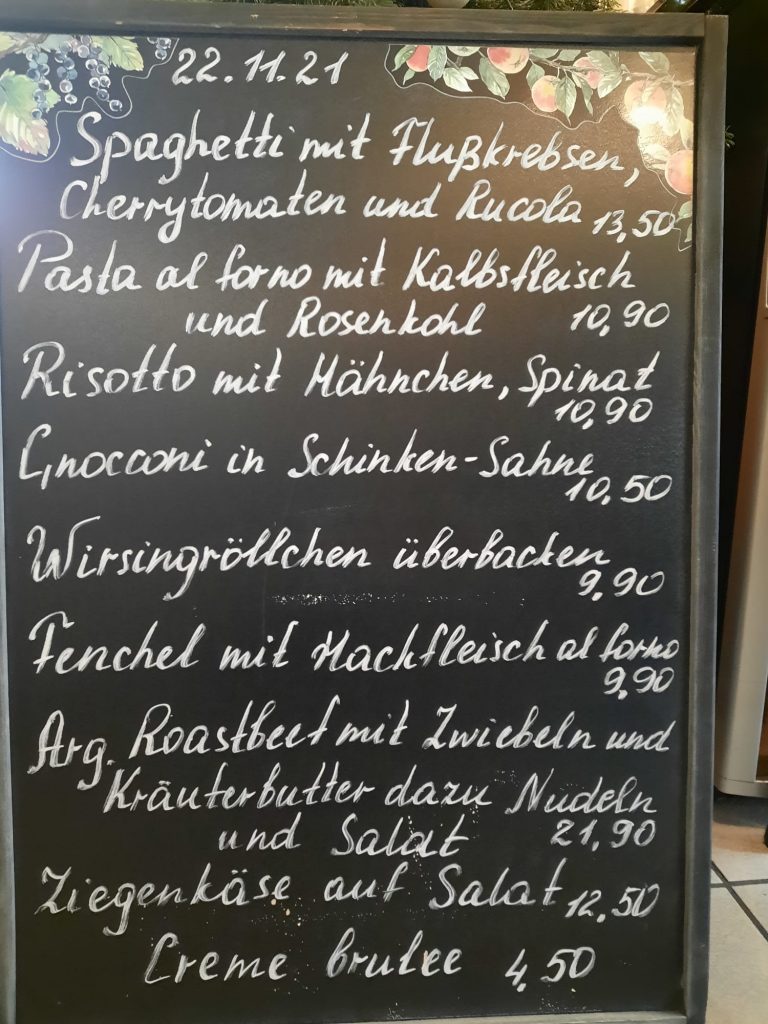 22.11.21
Spaghetti mit Flußkrebsen,
Cherrytomaten und Rucola 13,50
Pasta al forno mit Kalbsfleisch
und Rosenkohl 10,90
Risotto mit Hähnchen, Spinat
10,90
Gnocconi in Schinken-Sahne
10,50
Wirsingröllchen überbacken
9,90
Fenchel mit Hackfleisch al forno
9,90
Arg. Roastbeef mit Zwiebeln und
Kräuterbutter dazu Nudeln
und Salat 21,90
Ziegenkäse auf Salat 12,50
Creme brulee 4,50